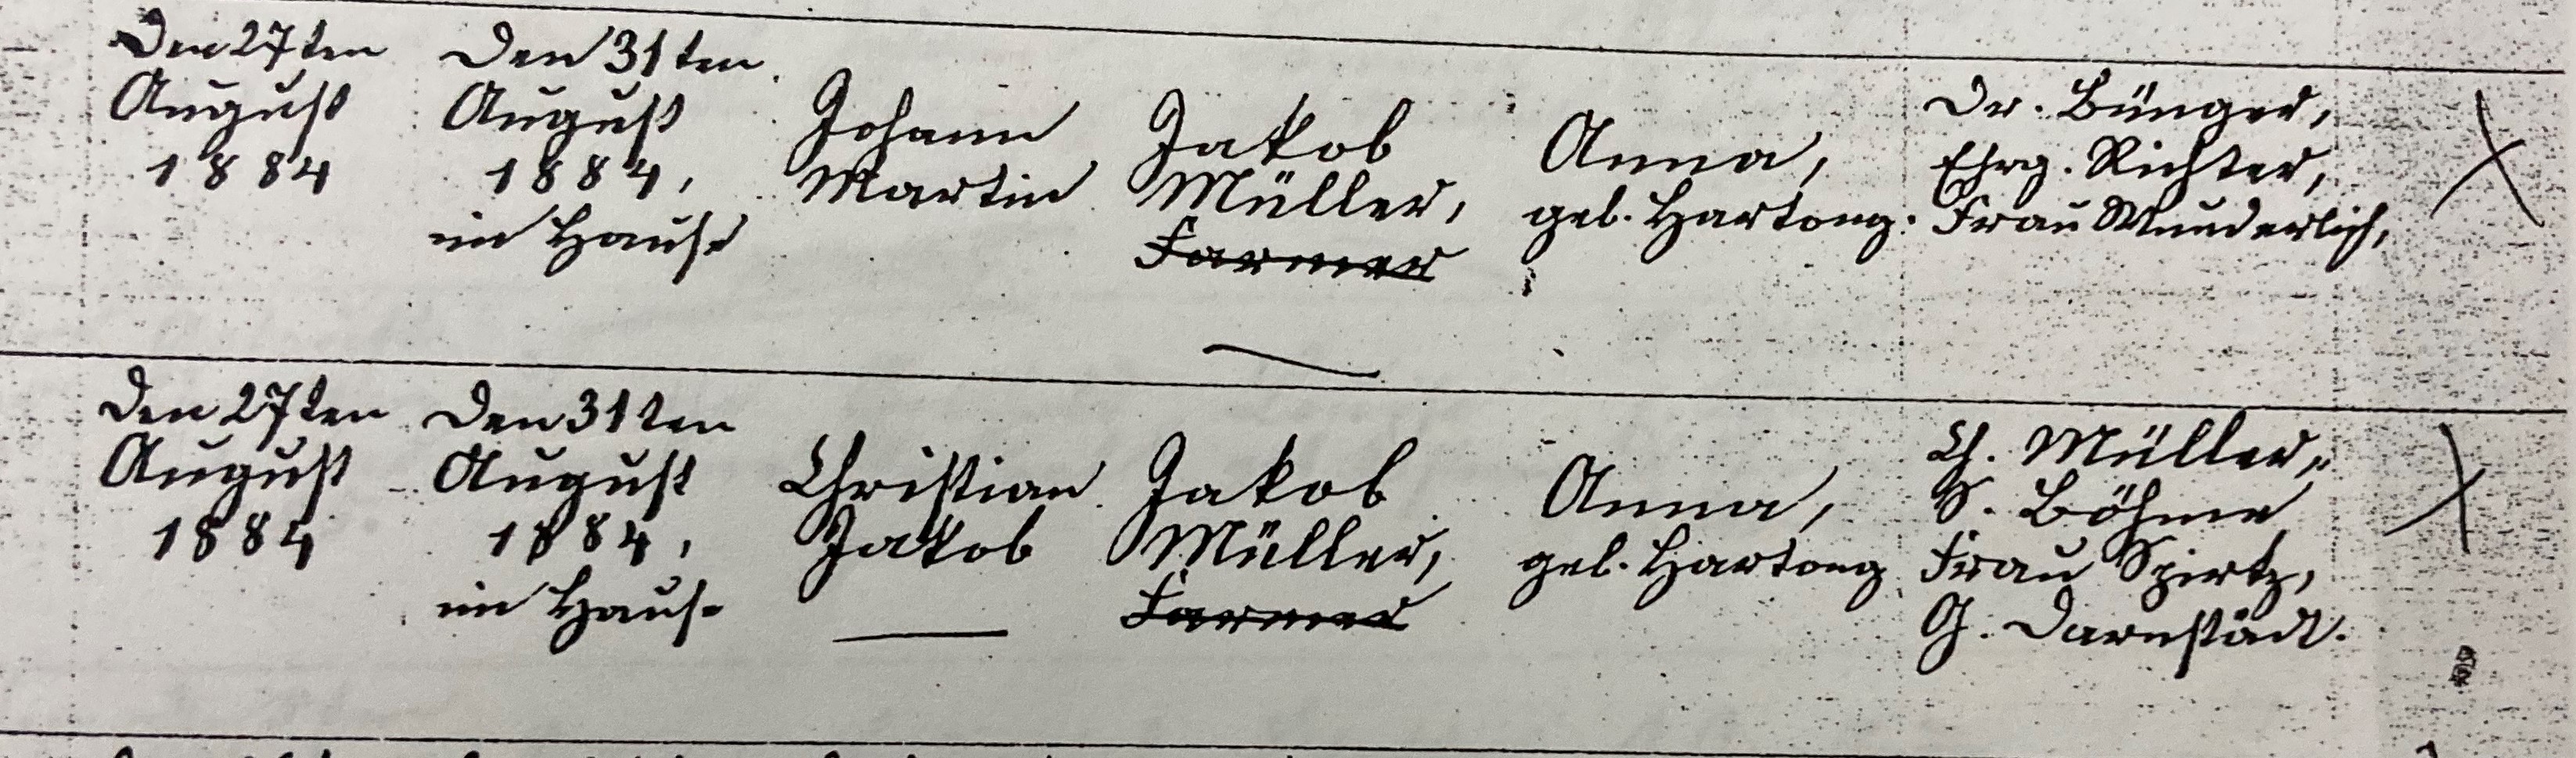 Den 27ten
August
1884
Den 31ten
August
1884,
im Hause
Johann
Martin
Jakob
Müller,
Farmer
Anna,
geb. Hartong.
Dr. Bünger,
Ehrg. Richter,
Frau Wunderlich,
Den 27ten
August
1884
Den 31ten
August
1884,
im Hause
Christian
Jakob
Jakob
Müller,
Farmer
Anna,
geb. Hartong
Ch. Müller,
S. Böhme
Frau Spirtz,
G. Darnstädt.